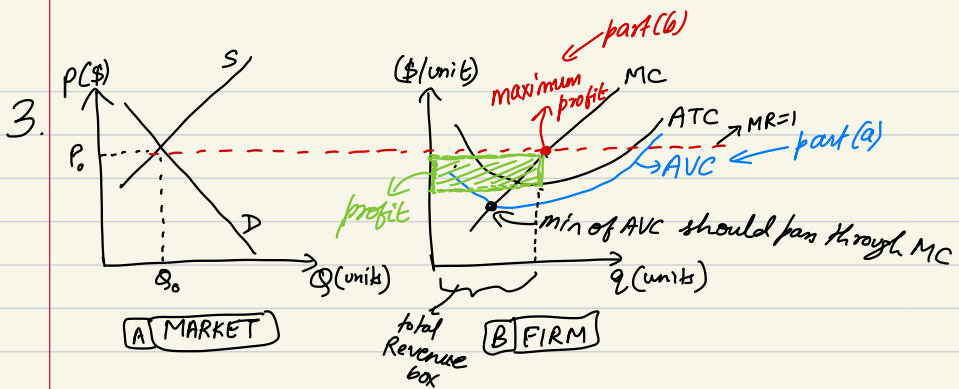 3.
P($)
S
P₀
D
Q₀
Q(units)
A MARKET
($/unit)
part(b)
maximum
profit
MC
ATC
MR=1
AVC
part(a)
profit
min of AVC should pass through MC
q(units)
total
Revenue
box
B FIRM